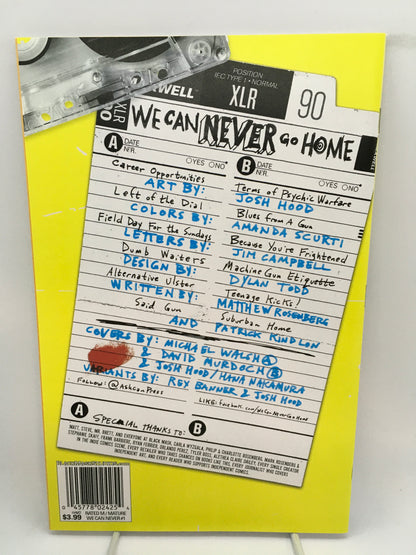 POSITION
IEC TYPE I • NORMAL
XWELL
XLR
90
XLR
WE CAN NEVER GO HOME
A DATE
N/R. YES NO
B DATE
N/R. YES NO
Career Opportunities
Terms of Psychic Warfare
ART BY: JOSH HOOD
Left of the Dial
Blues from A Gun
COLORS BY: AMANDA SCURTI
Field Day For the Sundays
Because You're Frightened
LETTERS BY: JIM CAMPBELL
Dumb Waiters
Machine Gun Etiquette
DESIGN BY: DYLAN TODD
Alternative Ulster
Teenage Kicks
WRITTEN BY: MATTHEW ROSENBERG
Said Gun
Suburban Home
AND PATRICK KINDLON
COVERS BY: MICHAEL WALSH A
& DAVID MURDOCH B
& JOSH HOOD / HANA NAKAMURA
VARIANTS BY: REX BANNER & JOSH HOOD
Follow: @AshcanPress
LIKE: facebook.com/WeCanNeverGoHome
A
B
SPECIAL THANKS TO:
MATT, STEVE, MR. BRETT, AND EVERYONE AT BLACK MASK, CARLA WYZGALA, PHILIP & CHARLOTTE ROSENBERG, MARK ROSENBERG &
STEPHANIE SKAFF, FRANK BARBIERE, RYAN FERRIER, ORLANDO PEREZ, TYLER BOSS, ALETHEA CLAIRE DAILEY, EVERY SINGLE CREATOR
IN THE INDIE COMICS SCENE, EVERY RETAILER WHO TAKES CHANCES ON BOOKS LIKE THIS, EVERY JOURNALIST WHO COVERS
INDEPENDENT ART, AND EVERY READER WHO SUPPORTS INDEPENDENT COMICS.
0 45778 02425 4
$3.99
RATED M / MATURE
WE CAN NEVER #1